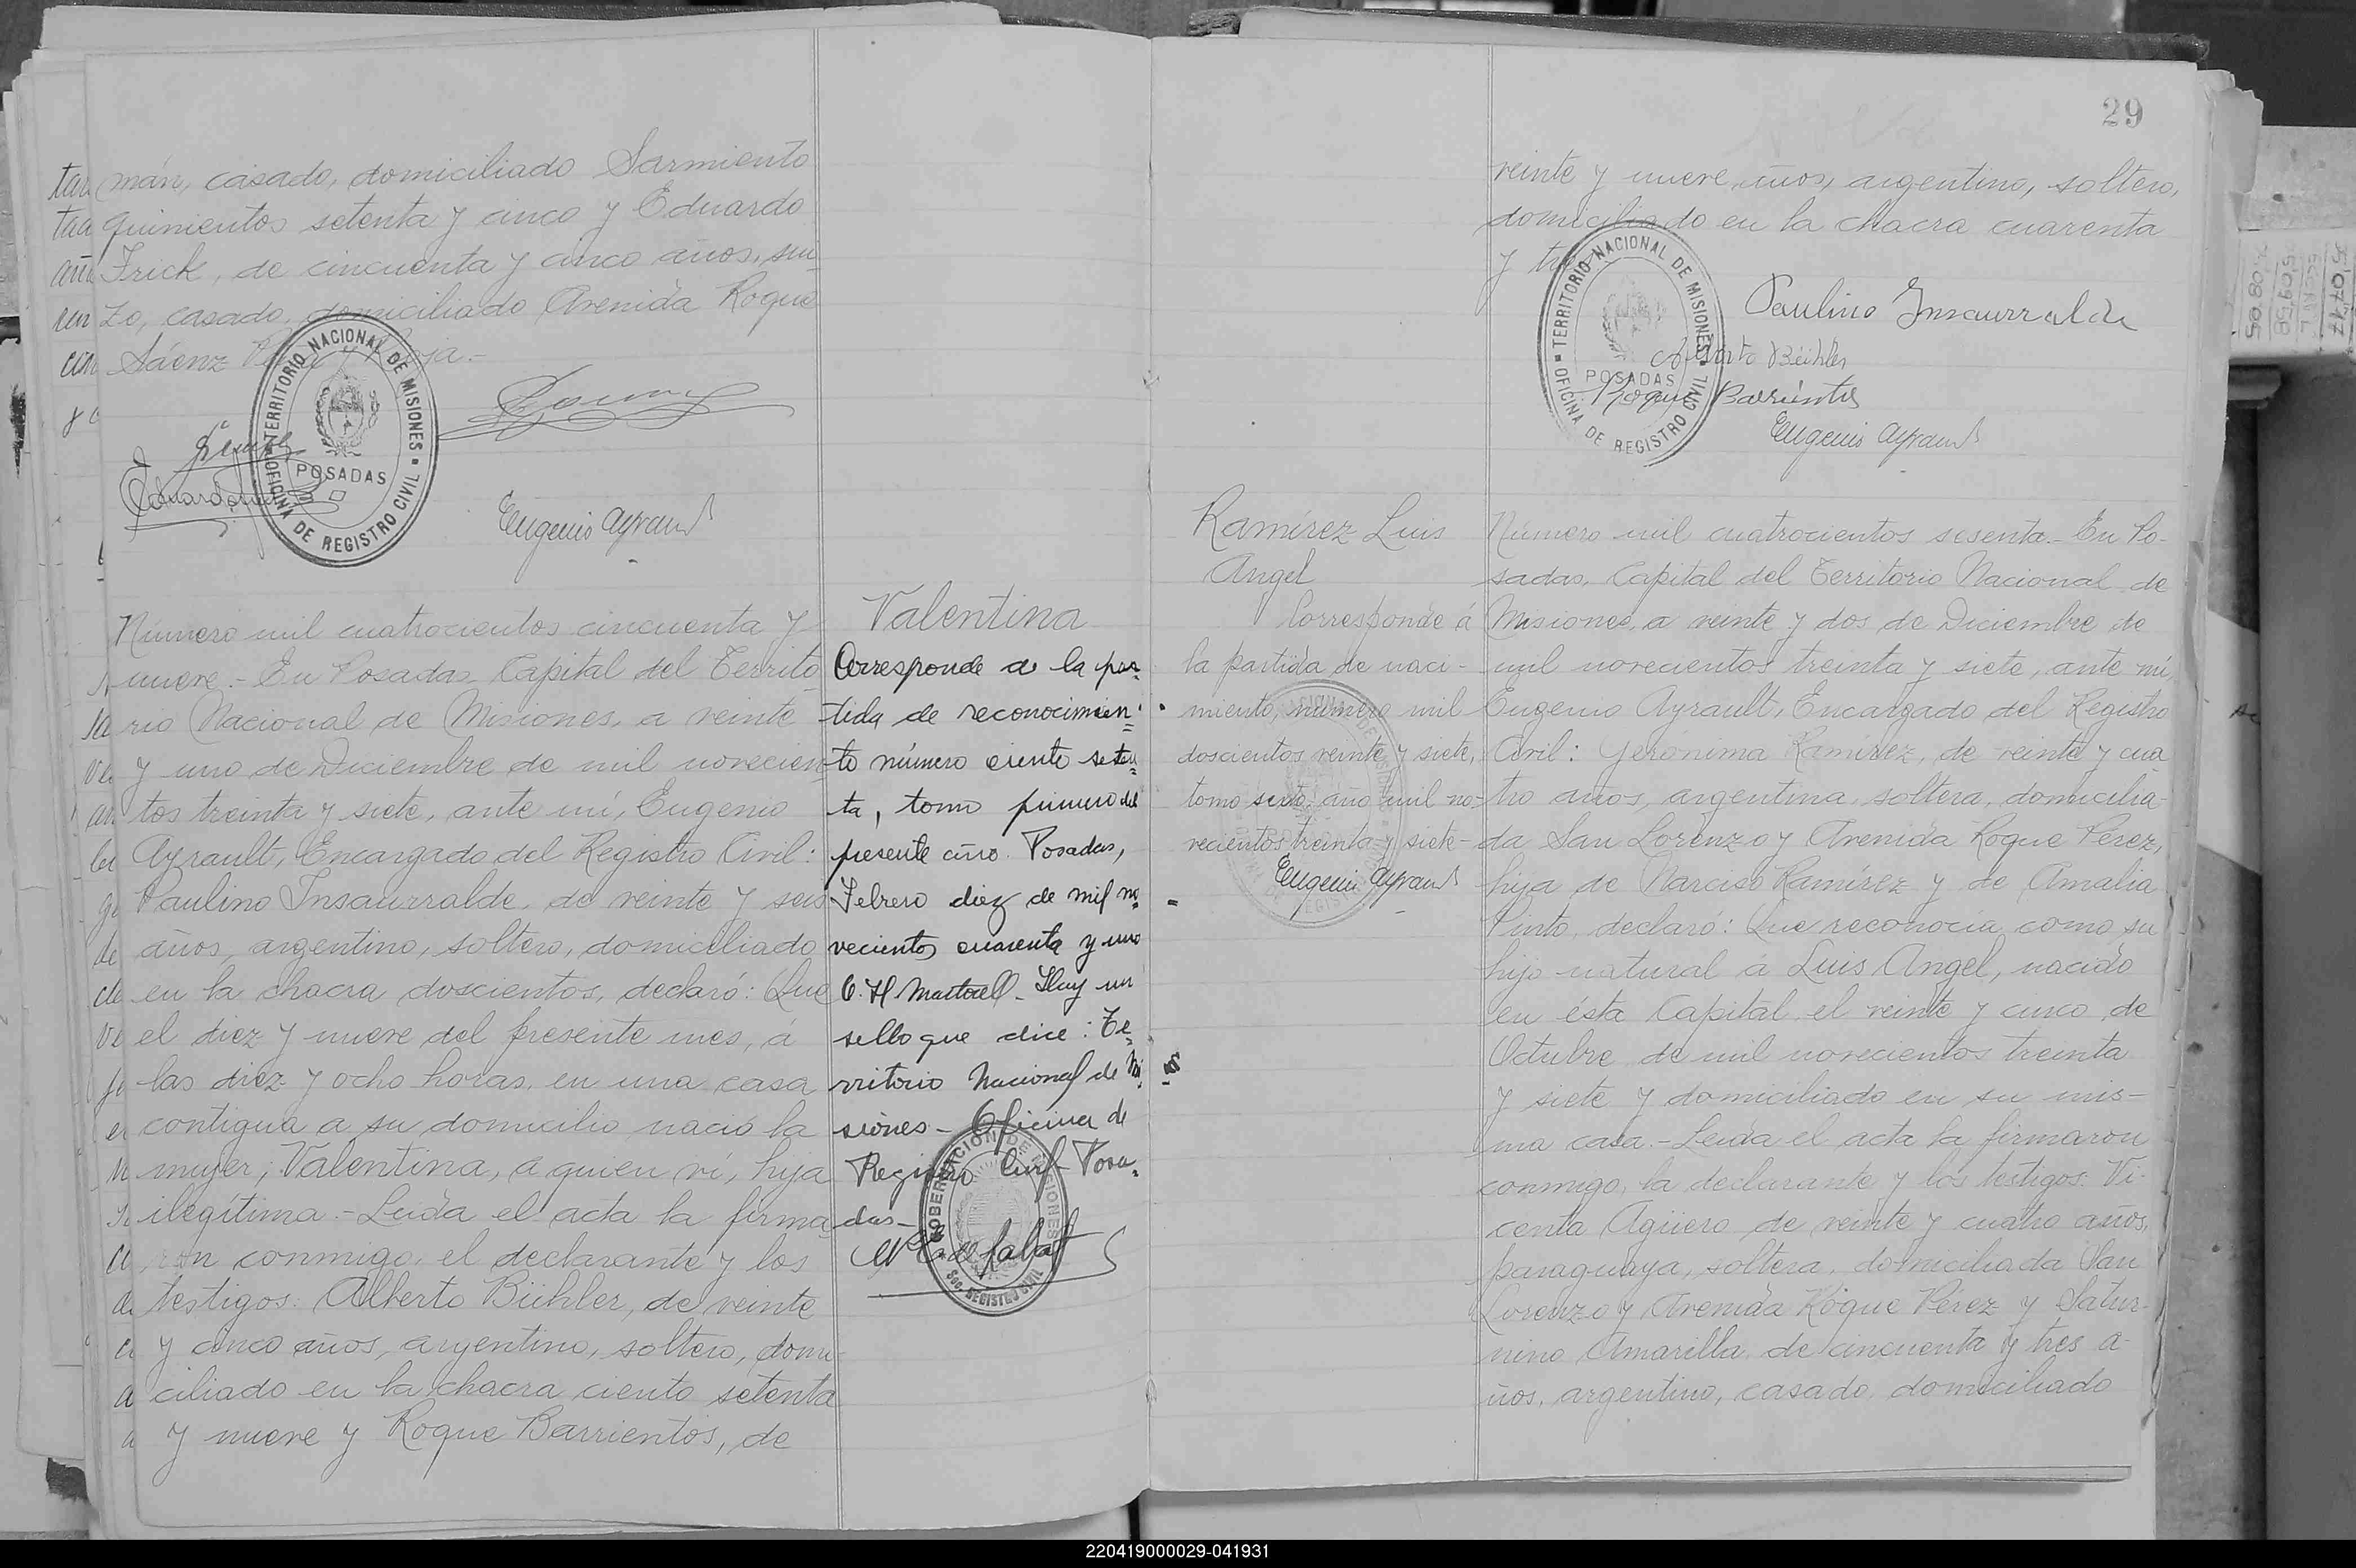 mán, casado, domiciliado Sarmiento
quinientos setenta y cinco y Eduardo
Frick, de cincuenta y cinco años, sui
zo, casado, domiciliado Avenida Roque
Sáenz Peña y Rioja.-
TERRITORIO NACIONAL DE MISIONES
POSADAS
OFICINA DE REGISTRO CIVIL
Eugenio Ayrault
Número mil cuatrocientos cincuenta y
nueve.- En Posadas, Capital del Territo
rio Nacional de Misiones, a veinte
y uno de Diciembre de mil novecien
tos treinta y siete, ante mí, Eugenio
Ayrault, Encargado del Registro Civil:
Paulino Insaurralde, de veinte y seis
años, argentino, soltero, domiciliado
en la chacra doscientos, declaró: Que
el diez y nueve del presente mes, á
las diez y ocho horas, en una casa
contigua a su domicilio nació la
mujer, Valentina, a quien ví, hija
ilegítima.- Leída el acta la firma
ron conmigo, el declarante y los
testigos: Alberto Bühler, de veinte
y cinco años, argentino, soltero, domi-
ciliado en la chacra ciento setenta
y nueve y Roque Barrientos, de
Valentina
Corresponde a la par
tida de reconocimien
to número ciento seten
ta, tomo primero del
presente año. Posadas,
Febrero diez de mil no
vecientos cuarenta y uno
C. H. Martorell - Hay un
sello que dice: Te
rritorio Nacional de Mi
siones - Oficina de
Registro Civil - Posa
das -
GOBERNACION DE MISIONES
SEC. REGISTRO CIVIL
29
veinte y nueve años, argentino, soltero,
domiciliado en la chacra cuarenta
y tres
TERRITORIO NACIONAL DE MISIONES
POSADAS
OFICINA DE REGISTRO CIVIL
Paulino Insaurralde
Alberto Bühler
Roque Barrientos
Eugenio Ayrault
Ramírez Luis
Angel
Corresponde á
la partida de naci-
miento, número mil
doscientos veinte y siete,
tomo sexto, año mil no-
vecientos treinta y siete-
Eugenio Ayrault
Número mil cuatrocientos sesenta.- En Po-
sadas, Capital del Territorio Nacional de
Misiones, a veinte y dos de Diciembre de
mil novecientos treinta y siete, ante mí,
Eugenio Ayrault, Encargado del Registro
Civil: Gerónima Ramírez, de veinte y cua
tro años, argentina, soltera, domicilia-
da San Lorenzo y Avenida Roque Pérez,
hija de Narciso Ramírez y de Amalia
Pinto, declaró: Que reconocía como su
hijo natural a Luis Angel, nacido
en ésta Capital el veinte y cinco de
Octubre de mil novecientos treinta
y siete y domiciliado en su mis-
ma casa.- Leída el acta la firmaron
conmigo, la declarante y los testigos: Vi-
centa Agüero de veinte y cuatro años,
paraguaya, soltera, domiciliada San
Lorenzo y Avenida Roque Pérez y Satur-
nino Amarilla, de cincuenta y tres a-
ños, argentino, casado, domiciliado
220419000029-041931